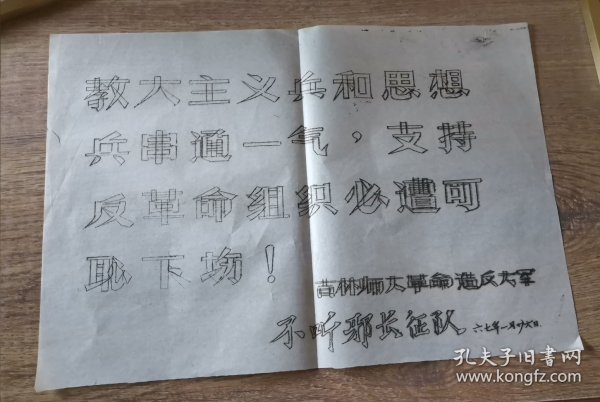 教大主义兵和思想
兵串通一气，支持
反革命组织必遭可
耻下场！
吉林师大革命造反大军
不听邪长征队
六七年一月廿六日
孔夫子旧书网
www.kongfz.com